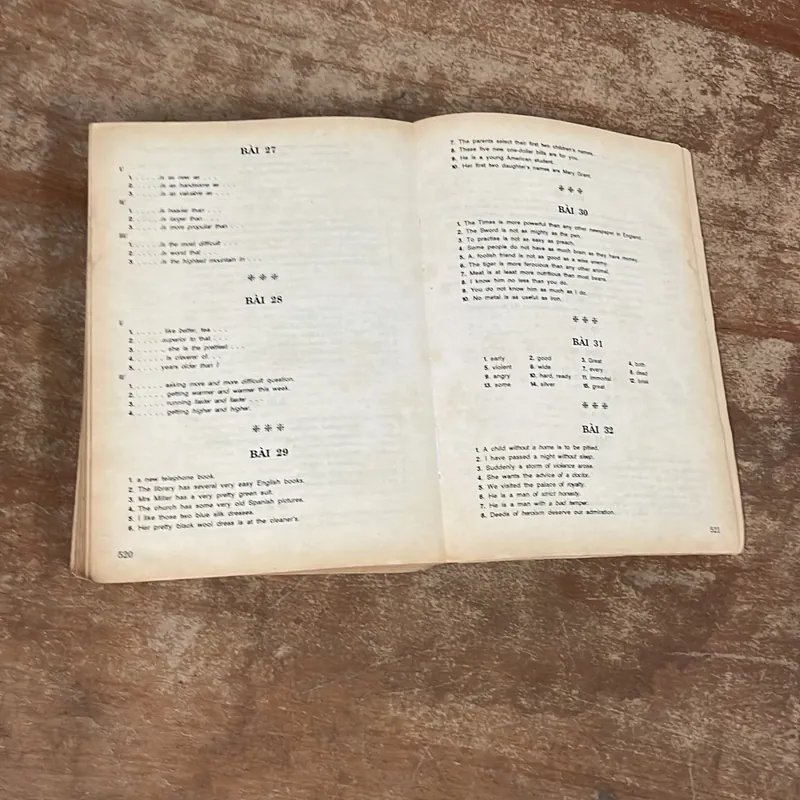 BÀI 27
V
1. . . . . . is as new as . . .
2. . . . . . is as handsome as . . .
3. . . . . . is as valuable as . . .
1. . . . . . is heavier than . . .
2. . . . . . is larger than . . .
3. . . . . . is more propular than . . .
1. . . . . . is the most difficult . . .
2. . . . . . is worst that . . .
3. . . . . . is the highest mountain in . . .
BÀI 28
V
1. . . . . . like better, tea . . .
2. . . . . . superior to that . . .
3. . . . . ., she is the prettiest . . .
4. . . . . . is cleverer of . . .
5. . . . . . years older than I
1. . . . . . asking more and more difficult question.
2. . . . . . getting warmer and warmer this week.
3. . . . . . running faster and faster . . .
4. . . . . . getting higher and higher.
BÀI 29
1. a new telephone book.
2. The library has several very easy English books.
3. Mrs Miller has a very pretty green suit.
4. The church has some very old Spanish pictures.
5. I like those two blue silk dresses.
6. Her pretty black wool dress is at the cleaner's.
520
7. The parents select their first two children's names.
8. These five new one-dollar bills are for you.
9. He is a young American student.
10. Her first two daughter's names are Mary Grant.
BÀI 30
1. The Times is more powerful than any other newspaper in England.
2. The Sword is not as mighty as the pen.
3. To practise is not as easy as preach.
4. Some people do not have as much brain as they have money.
5. A foolish friend is not as good as a wise enemy.
6. The tiger is more ferocious than any other animal.
7. Meat is at least more nutritious than most beans.
8. I know him no less than you do.
9. You do not know him as much as I do.
10. No metal is as useful as iron.
BÀI 31
1. early 2. good 3. Great 4. both
5. violent 6. wide 7. every 8. dead
9. angry 10. hard, ready 11. immortal 12. brisk
13. some 14. silver 15. great
BÀI 32
1. A child without a home is to be pitied.
2. I have passed a night without sleep.
3. Suddenly a storm of violence arose.
4. She wants the advice of a doctor.
5. We visited the palace of royalty.
6. He is a man of strict honesty.
7. He is a man with a bad temper.
8. Deeds of heroism deserve our admiration.
521